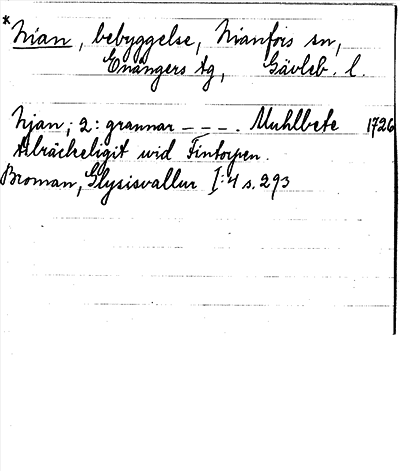 * Nian, bebyggelse, Nianfors sn,
Enångers tg, Gävleb. l.
Njan; 2: grannar – – –. Muhlbete 1726
tilräckeligit wid Fintorpen.
Broman, Glysisvallur I:4 s. 293